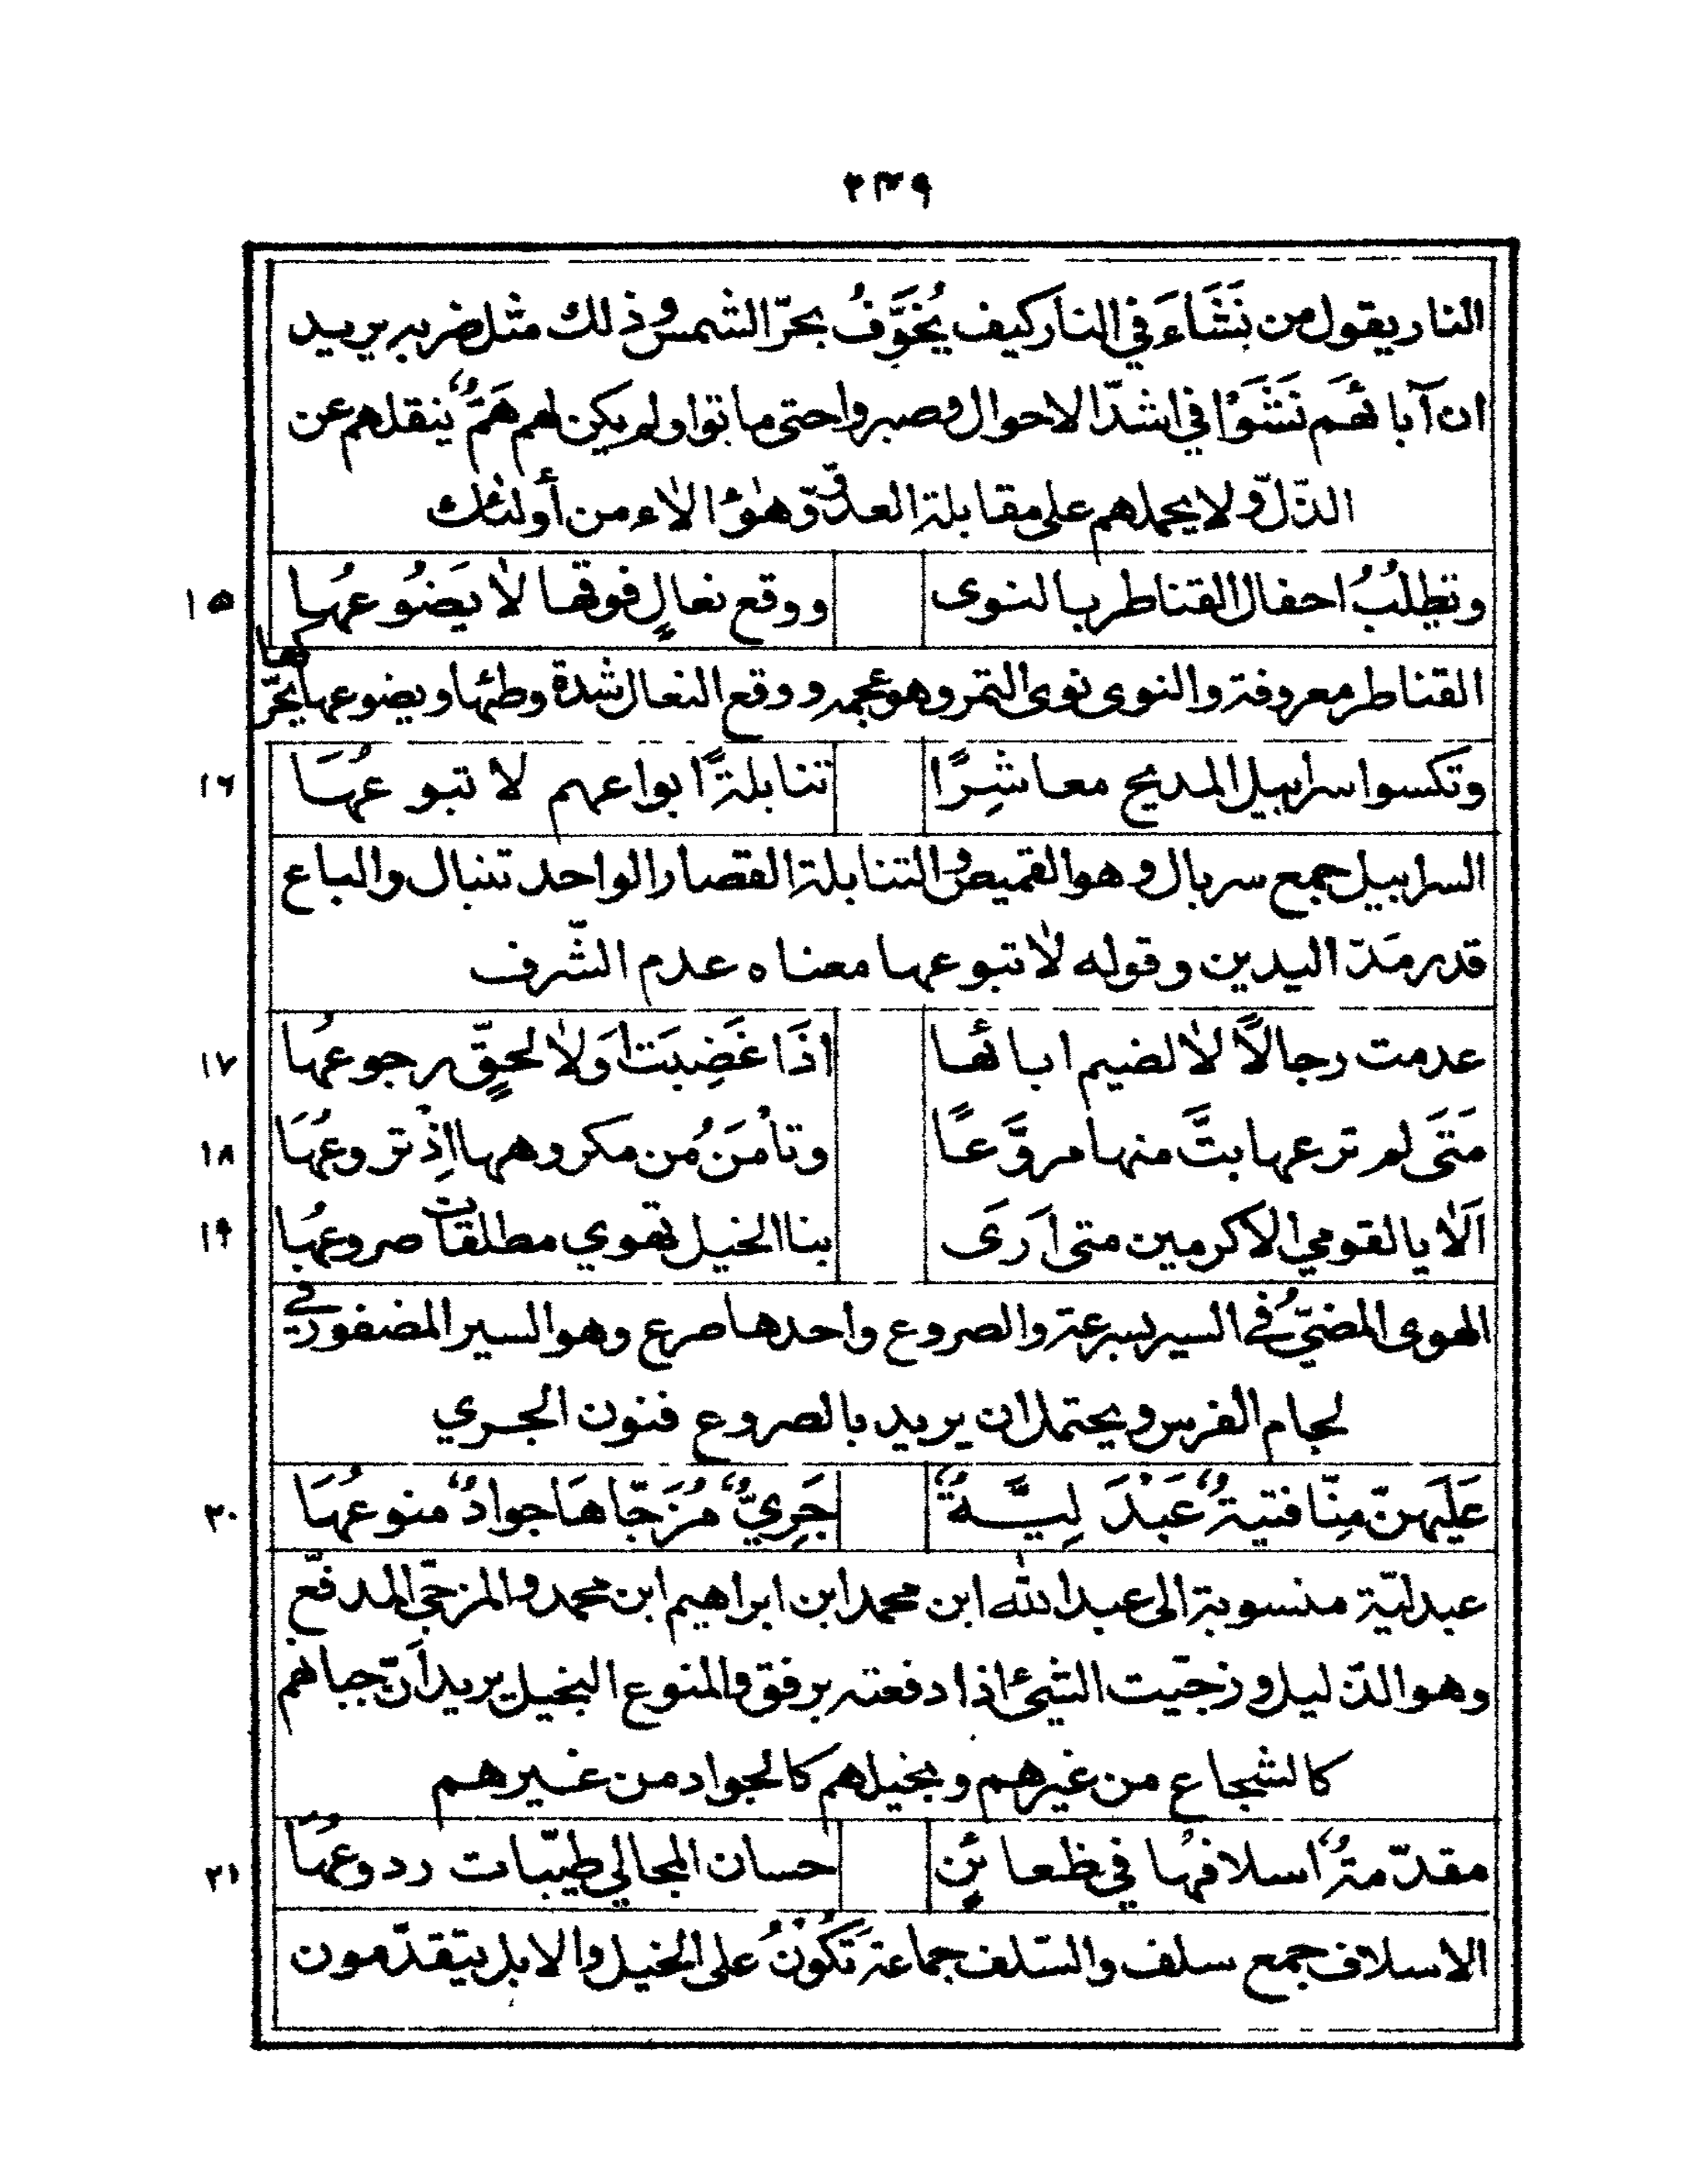 ٢٣٩
النار يقول من نَشَاءَ في النار كيف يُخَوَّفُ بحرّ الشمس وذلك مثل ضربه يريد
ان آبائهم نَشَوْا في اشدّ الاحوال وصبروا حتى ماتوا ولم يكن لهم هَمٌّ ينقلهم عن
الذّلّ ولا يحملهم على مقابلة العدوّ وهٰؤلاء من أولئك
وتطلبُ احفال القناطر بالنوى ووقع نعالٍ فوقها لا يَضُوعُها ١٥
القناطر معروفة والنوى نوى التمر وهو عجمه ووقع النعال شدة وطئها ويضوعها يحرّكها
وتكسوا سرابيل المديح معاشِرًا تنابلةً ابواعهم لا تبوعُهَا ١٦
السرابيل جمع سربال وهو القميص والتنابلة القصار الواحد تنبال والباع
قدر مَدّ اليدين وقوله لا تبوعها معناه عدم الشّرف
عدمت رجالاً لا لضيم ابائها اذَا غَضِبَت وَلا لحقٍّ رجوعُهَا ١٧
مَتَى لم ترعها بتَّ منها مروَّعًا وتامَنُ من مكروهها اِذْ تروعُهَا ١٨
اَلا يا لقومي الاكرمين متى اَرَى بنا الخيل تهوي مطلقات صروعُهَا ١٩
الهوى المضيُّ في السير بسرعة والصروع واحدها صرع وهو السير المضفور في
لجام الفرس ويحتمل ان يريد بالصروع فنون الجري
عَلَيهنّ مِنّا فتيةٌ عَبْدَلِيَّةٌ جَرِيٌّ مُزَجّاهَا جوادٌ منوعُهَا ٢٠
عبدليّة منسوبة الى عبدالله ابن محمد ابن ابراهيم ابن محمد والمزجّى المدفّع
وهو الذّليل وزجّيت الشيئ اذا دفعته برفق والمنوع البخيل يريد اَنّ جبانهم
كالشجاع من غيرهم وبخيلهم كالجواد من غيرهم
مقدّمةٌ اسلافُها في ظعائنٍ حسان المجالي طيّبات ردوعُهَا ٢١
الاسلاف جمع سلف والسّلف جماعة تَكُونُ على الخيل والابل يتقدّمون